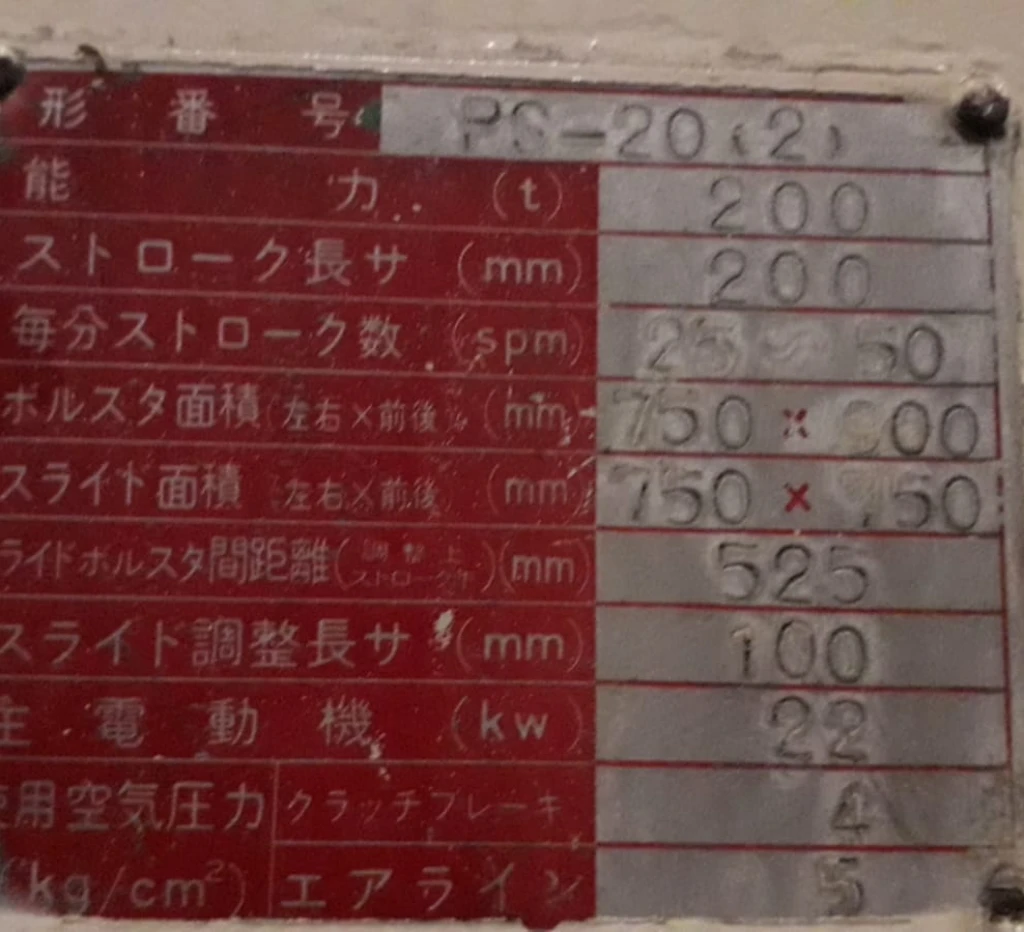 形番号 PS-20(2)
能力 (t) 200
ストローク長サ (mm) 200
毎分ストローク数 (spm) 25～50
ボルスタ面積 (左右×前後) (mm) 750×900
スライド面積 (左右×前後) (mm) 750×750
ライドボルスタ間距離 (調整上ストローク下) (mm) 525
スライド調整長サ (mm) 100
主電動機 (kw) 22
使用空気圧力 クラッチブレーキ 4
(kg/cm²) エアライン 5